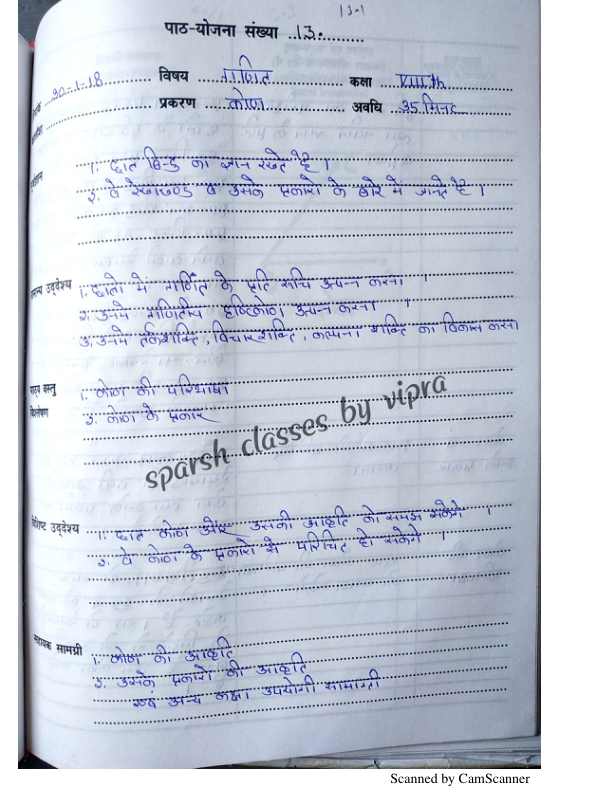 13-1
पाठ-योजना संख्या ..13.
30-1-18 विषय गणित कक्षा VIII th
प्रकरण कोण अवधि 35 मिनट
1. छात्र बिन्दु का ज्ञान रखते है ।
2. वे रेखाखण्ड व उसके प्रकारो के बारे में जानते है ।
उद्देश्य 1. छात्रो में गणित के प्रति रूचि उत्पन्न करना ।
2. उनमे गणितीय दृष्टिकोण उत्पन्न करना ।
3. उनमे तर्कशक्ति, विचारशक्ति, कल्पना शक्ति का विकास करना
पाठ्य वस्तु 1. कोण की परिभाषा
विश्लेषण 2. कोण के प्रकार
sparsh classes by vipra
विशिष्ट उद्देश्य 1. छात्र कोण और उसकी आकृति को समझ सकेगे ।
2. वे कोण के प्रकारो से परिचित हो सकेगे ।
सहायक सामग्री 1. कोण की आकृति
2. उसके प्रकारो की आकृति
एवं अन्य कक्षा उपयोगी सामाग्री
Scanned by CamScanner